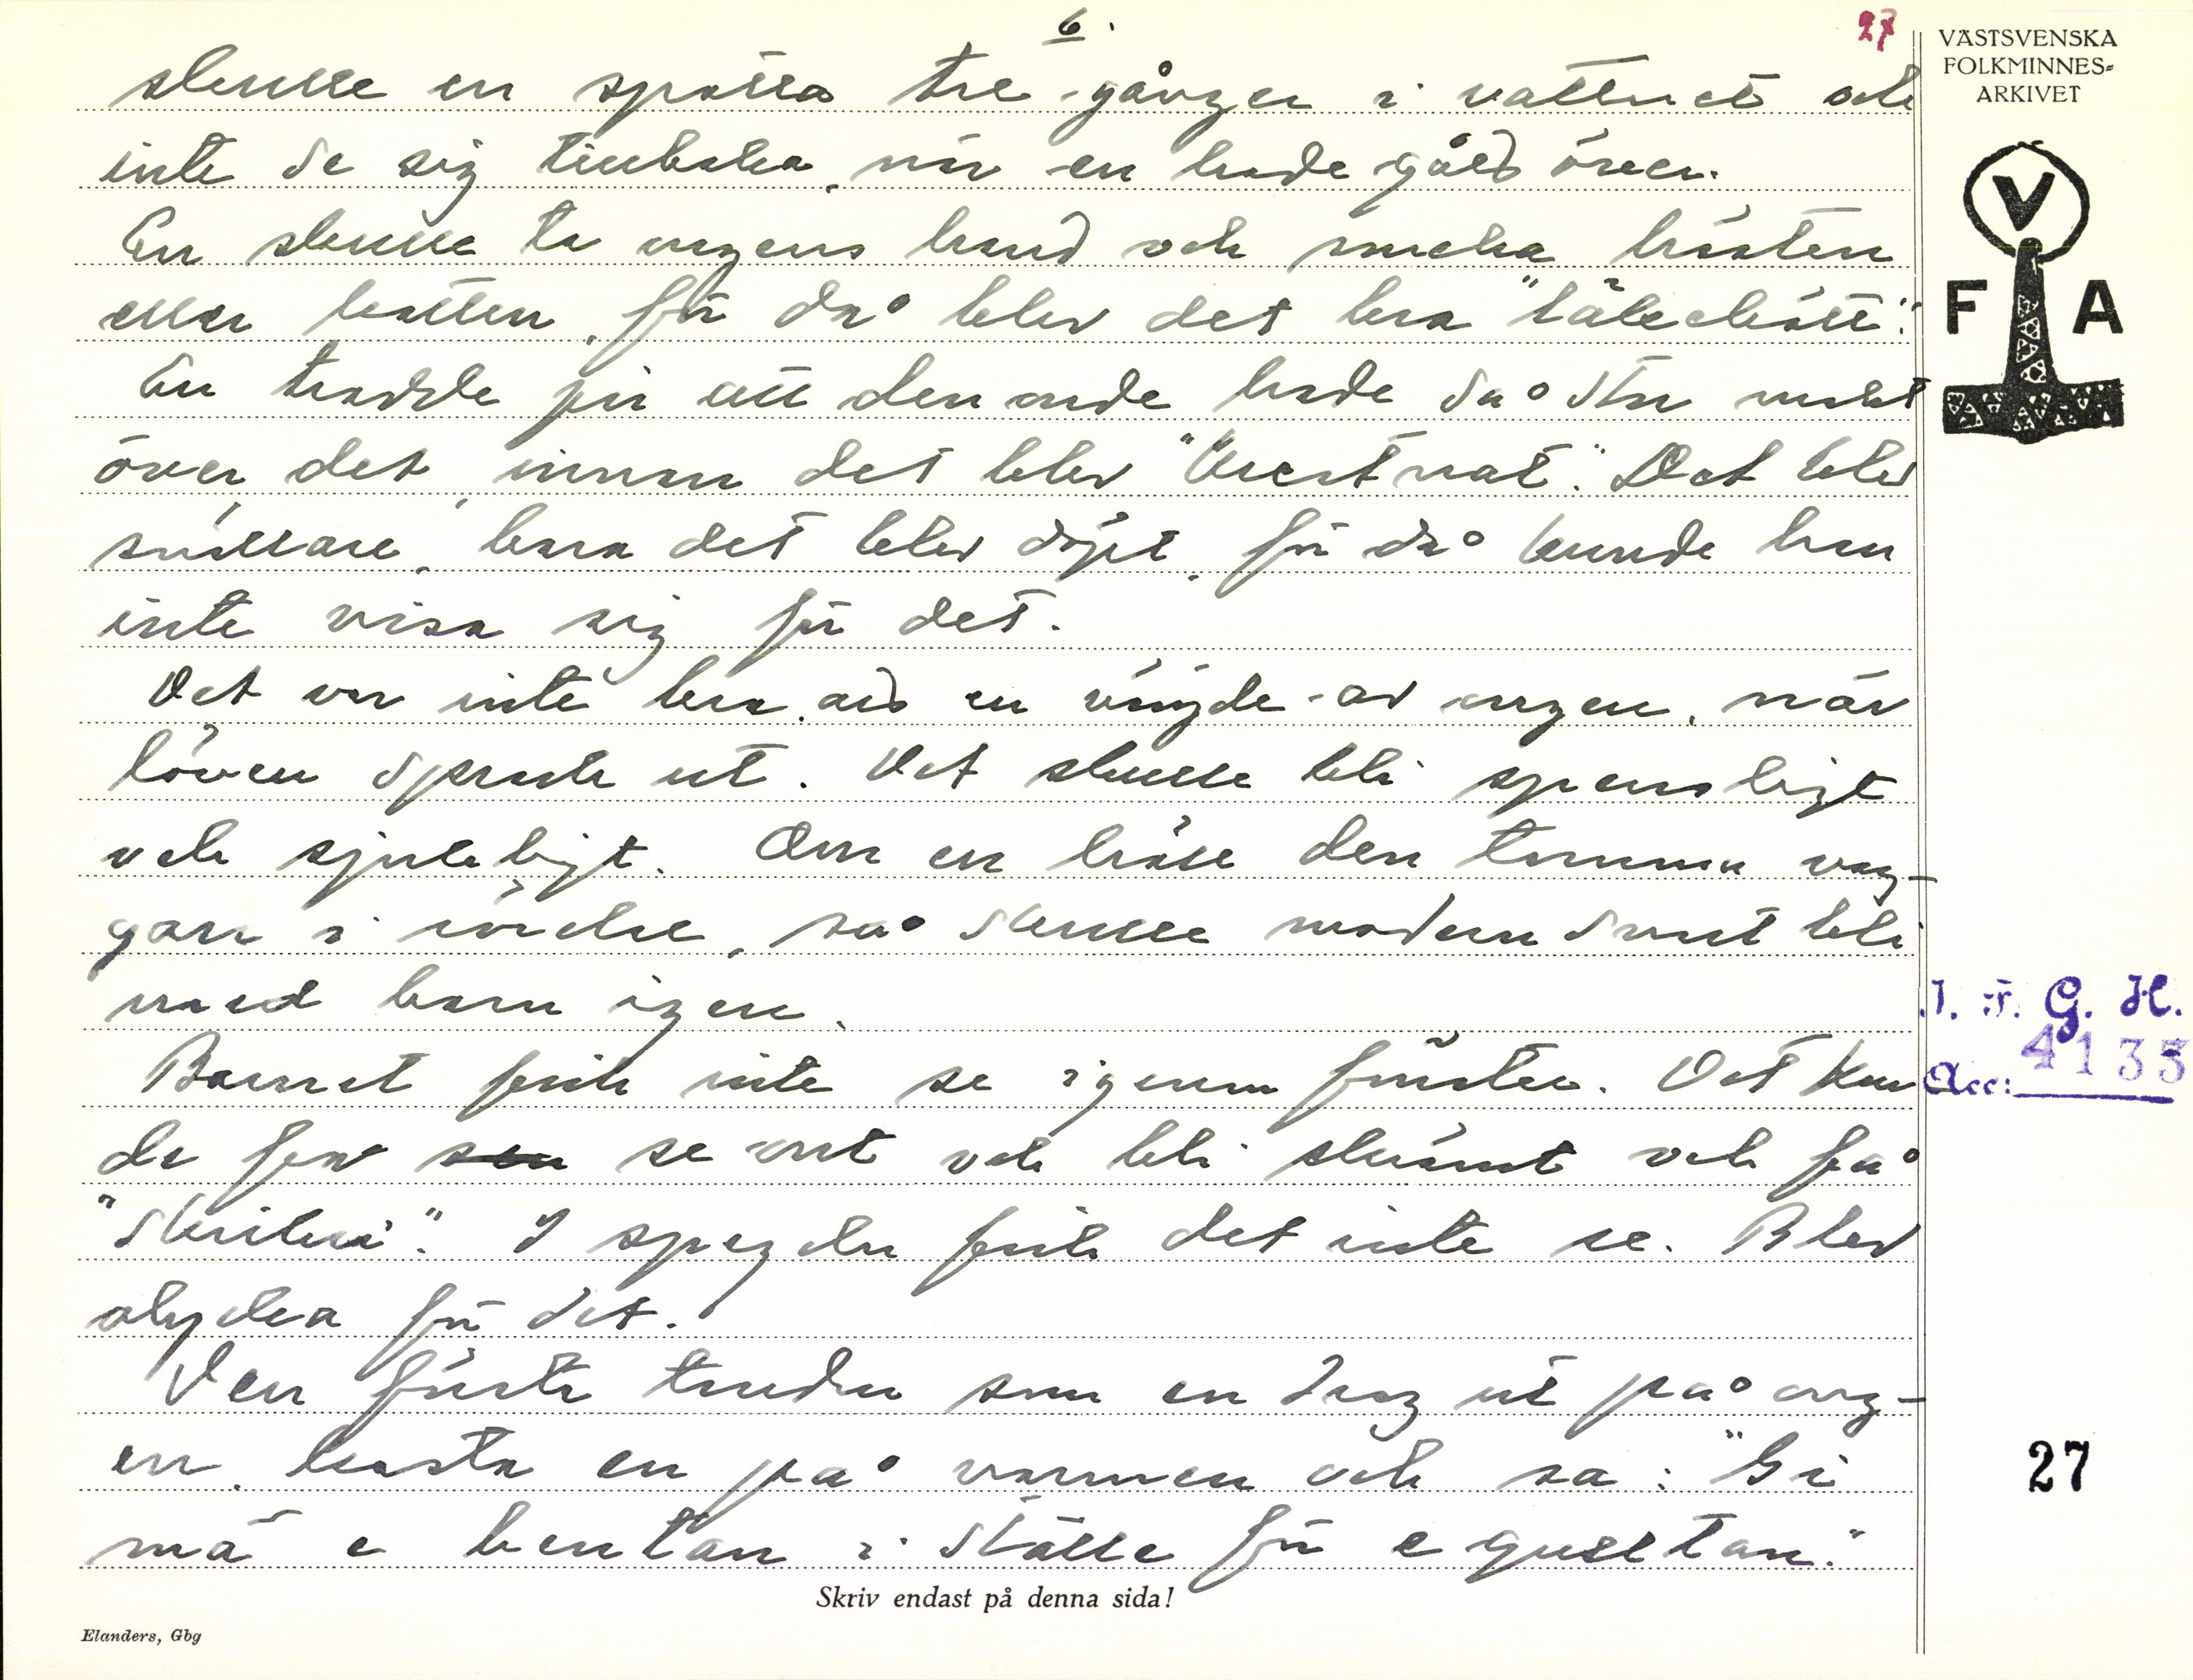 6.
27
VÄSTSVENSKA
FOLKMINNES=
ARKIVET
V
F A
skulle en spotta tre gånger i vattnet och
inte se sig tillbaka, när en hade gått över.
En skulle ta ungens hand och smeka hästen
eller katten, för då blev det bra "läkekött".
En trodde på att den onde hade så stor makt
över det, innan det blev "krestnat". Det blev
snällare, bara det blev döpt, för då kunde han
inte visa sig för det.
Det var inte bra, att en vägde av ungen, när
löven sprack ut. Det skulle bli spensligt
och sjukligt. Om en höll den tomma vag-
gan i rörelse, så skulle modern snart bli
med barn igen.
Barnet fick inte se igenom fönster. Det kun
de för se ont och bli skrämt och få
I spegeln fick det inte se. Blev
olycka för det.
Den första tanden som en drog ut på ung-
en, kasta en på varmen och sa: "Gi
mä e bentan i ställe för e gulltan."
J. F. G. H.
Acc: 4133
27
Skriv endast på denna sida!
Elanders, Gbg